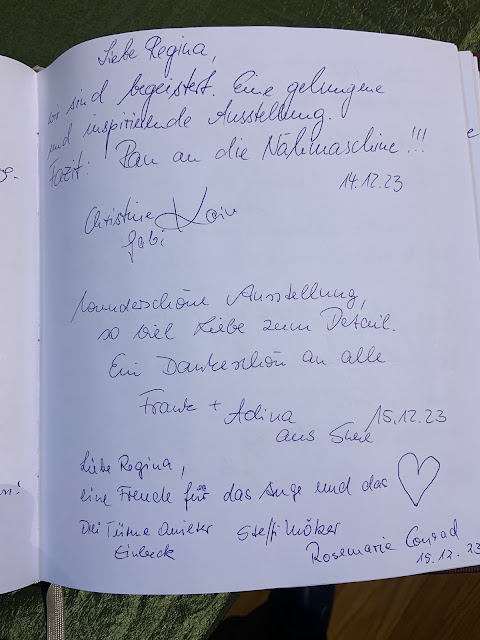 Liebe Regina,
wir sind begeistert. Eine gelungene
und inspirierende Ausstellung.
Fazit: Ran an die Nähmaschine!!!
14.12.23
Christine
Gabi
Wunderschöne Ausstellung,
so viel Liebe zum Detail.
Ein Dankeschön an alle
Frank + Adina 15.12.23
aus
Liebe Regina,
eine Freude für das Auge und das ♡
Drei Türme Steffi
Einbeck Rosemarie Conrad
15.12.23